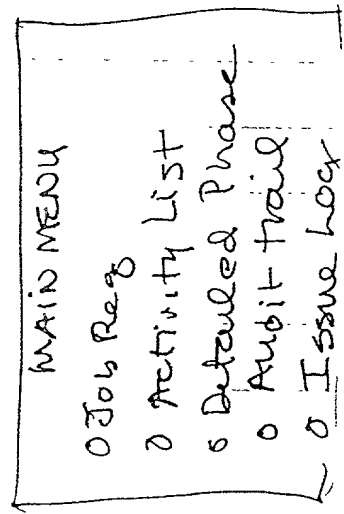 MAIN MENU
o Job Reg
o Activity List
o Detailed Phase
o Audit trail
o Issue Log